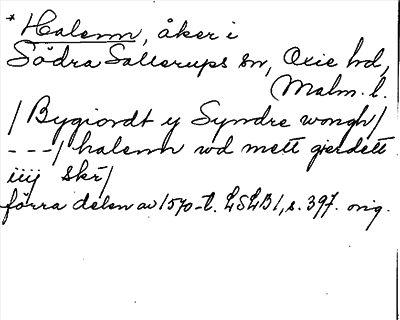 * Halenn, åker i
Södra Sallerups sn, Oxie hd,
Malm. l.
/ Bygiordt y Syndre wongh /
- - - / halenn wd mett gierdett
iiij skr /
förra delen av 1570-t. LSLB 1, s. 397. orig.